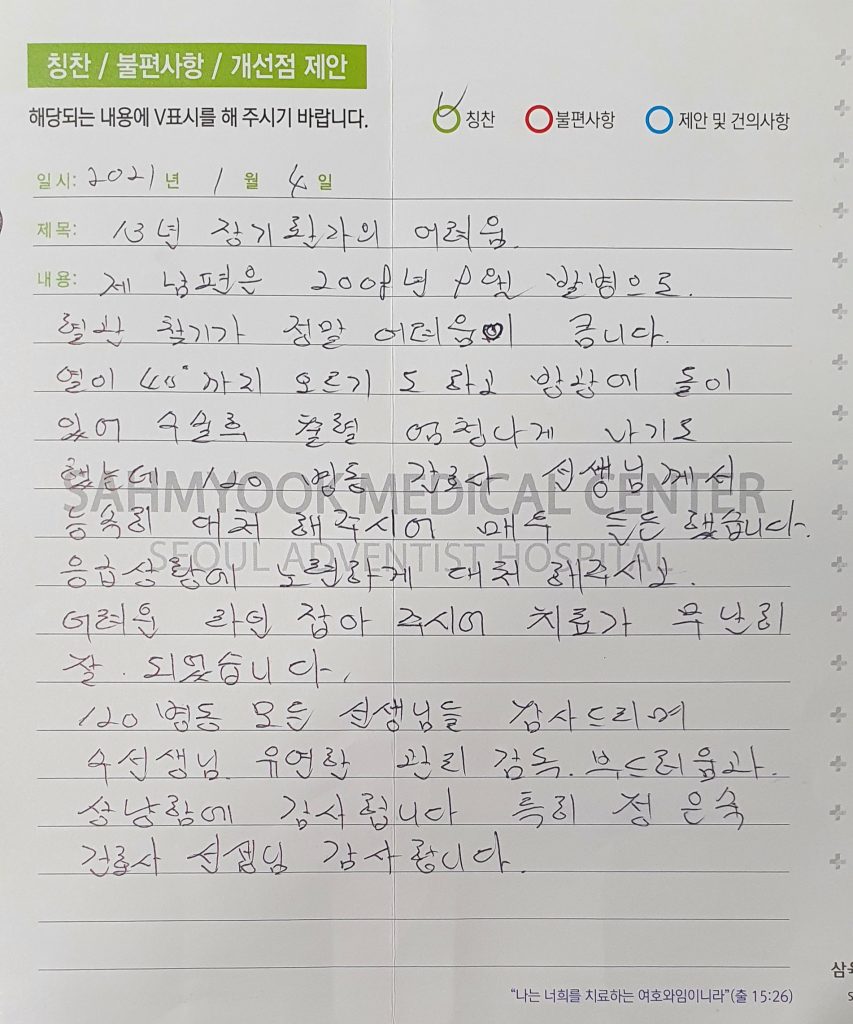 칭찬 / 불편사항 / 개선점 제안
해당되는 내용에 V표시를 해 주시기 바랍니다. 칭찬 불편사항 제안 및 건의사항
일시: 2021 년 1 월 4 일
제목: 13년 장기환자의 어려움.
내용: 제 남편은 2008년 8월 발병으로.
혈관 찾기가 정말 어려움이 큽니다.
열이 40°까지 오르기도 하고 방광에 돌이
있어 수술후 출혈 엄청나게 나기도
했는데 120 병동 간호사 선생님께서
SAHMYOOK MEDICAL CENTER
능숙히 대처 해주시어 매우 든든했습니다.
SEOUL ADVENTIST HOSPITAL
응급상황에 노련하게 대처 해주시고.
어려운 라인 잡아 주시어 치료가 무난히
잘. 되었습니다.
120 병동 모든 선생님들 감사드리며
수선생님. 유연한 관리 감독. 부드러움과.
상냥함에 감사합니다 특히 정 은숙
간호사 선생님 감사합니다.
“나는 너희를 치료하는 여호와임이니라”(출 15:26)